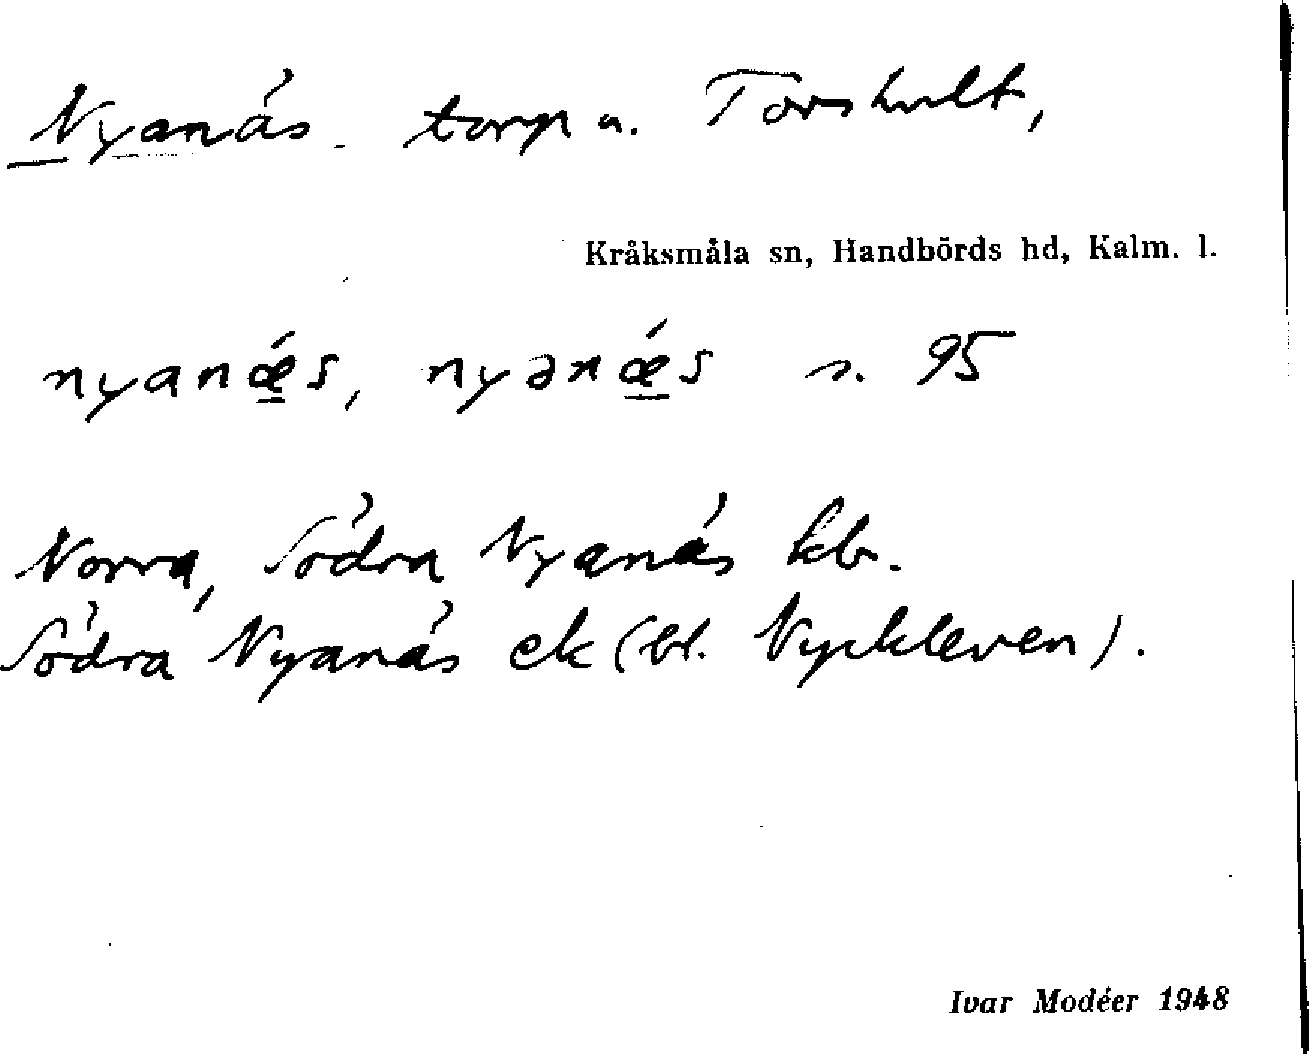 Nyanäs torp u. Torshult,
Kråksmåla sn, Handbörds hd, Kalm. l.
nyanǽs, nyənǽs s. 95
Norra, Södra Nyanäs kb.
Södra Nyanäs ek (bl. Nyckleven).
Ivar Modéer 1948